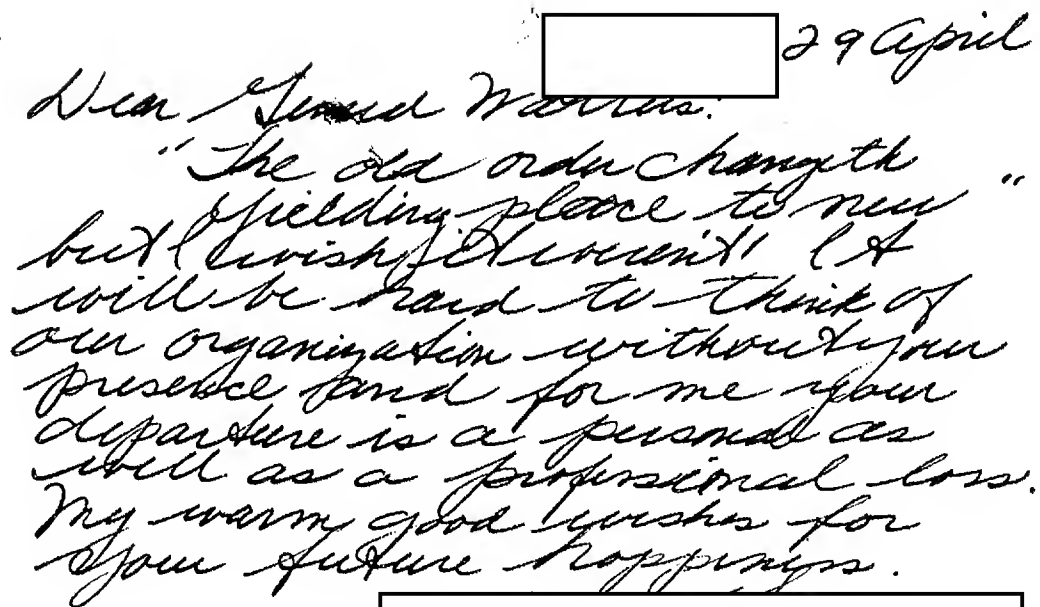 29 April
Dear General Walters:
"The old order changeth
yielding place to new"
but I wish it weren't! It
will be hard to think of
our organization without your
presence and for me your
departure is a personal as
well as a professional loss.
My warm good wishes for
your future happiness.